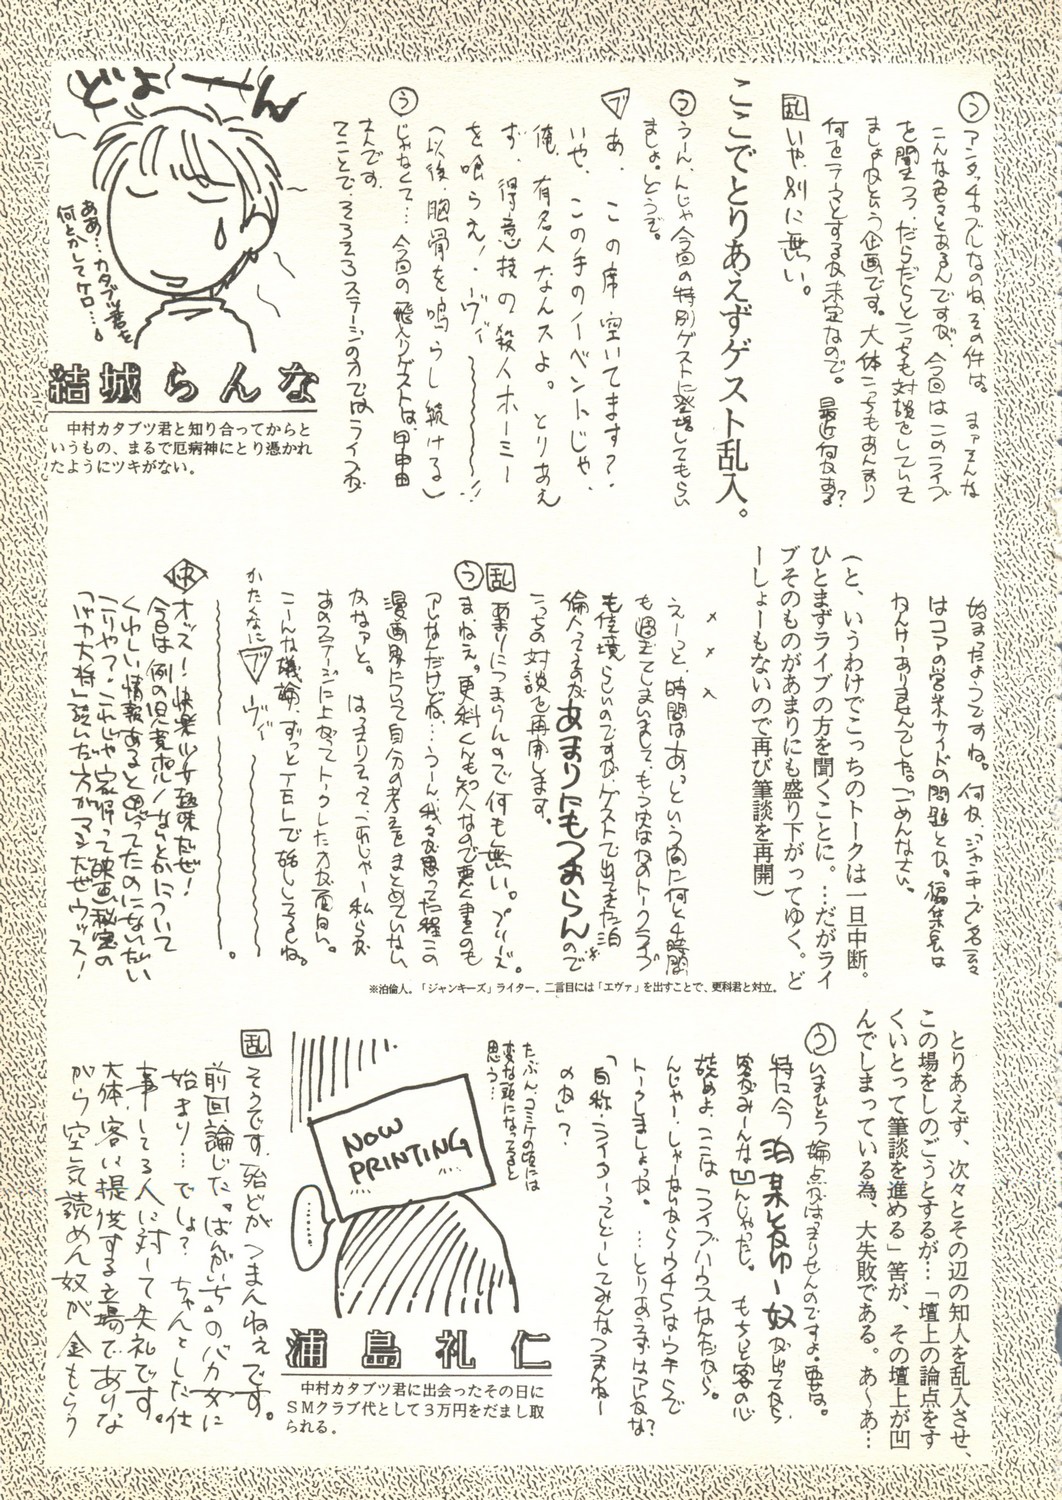 う アンタッチャブルなのね、その件は。まァそんな
こんな色々とあるんですが、今回はこのライブ
を聞きつつ、だらだらとこっちも対談をしていき
ましょうという企画です。大体こっちもあんまり
何をテーマとするか未定なので。最近何かある?
乱 いや、別に無い。
ここでとりあえずゲスト乱入。
う うーん、んじゃ今回の特別ゲストに登場してもらい
ましょ。どうぞ。
ブ あ、この席空いてます?
いや、この手のイベントじゃ、
俺、有名人なんスよ。とりあえ
ず、得意技の殺人ホーミー
を喰らえ!・ヴィ〜〜〜!!
(以後、胸骨を鳴らし続ける)
う じゃなくて…今回の飛入りゲストは、甲甲由
太人です。
てことで、そろそろステージの方ではライブが
どよーん
ああ…カタブツ君を
何とかしてケロ…。
結城らんな
中村カタブツ君と知り合ってからと
いうもの、まるで厄病神にとり憑かれ
たようにツキがない。
始まったようですね。何か、「ジャンキーズ」名云々
はコアの営業サイドの問題とか。編集長は
わんけーありませんでした。ごめんなさい。
(と、いうわけでこっちのトークは一旦中断。
ひとまずライブの方を聞くことに。…だがライ
ブそのものがあまりにも盛り下がってゆく。ど
ーしょーもないので再び筆談を再開)
× × ×
えーっと、時間はあっという間に何と4時間
も過ぎてしまいまして、もう実はなかのトークライブ
も佳境らしいのですが、ゲストで出てきた泊
倫人ってえのがあまりにもつまらんので※
こっちの対談を再開します。
乱 あまりにつまらんので何も無い。プリーズ。
う まねえ。更科くんも知人なので悪く書のも
アレなんだけどね、…うーん我々が思った程この
漫画界について自分の考えをまとめていない
なかァと。はっきりって、これじゃー私らが
あのステージに上がってトークした方が面白い。
こーんな議論、ずっとTELで話ししてるしね。
かたくなに ブ ヴィ〜〜〜。
快 オッス!快楽少女趣味だぜ!
今日は例の児童ポルノなんとかについて
くわしい情報あると思ってたのにないだい
こりゃ?これじゃ家帰って映画秘宝の
「バカ大将」読いだ方がマシだぜウッス!
※泊倫人。「ジャンキーズ」ライター。二言目には「エヴァ」を出すことで、更科君と対立。
とりあえず、次々とその辺の知人を乱入させ、
この場をしのごうとするが…「壇上の論点をす
くいとって筆談を進める」筈が、その壇上が凹
んでしまっている為、大失敗である。あ〜あ…
う いまひとつ論点がはっきりせんのですよ。要は。
特に今泊某とかゆー奴が出てから
客がみーんな凹んじゃったし。もちっと客の心
読めよ、ここはライブハウスなんだから。
んじゃー、しゃーないからウチらはウチらで
トークしましょっか。…とりあえずはアレかな?
「自称・ライターってどーしてみんなつまんねー
のか」?
たぶん、コミケの頃には
変な頭になってると
思う…
NOW
PRINTING
……
浦島礼仁
中村カタブツ君に出会ったその日に
SMクラブ代として3万円をだまし取
られる。
乱 そうです。殆どがつまんねえです。
前回論じた。"ばんがいち"のバカ女に
始まり…でしょ?ちゃんとした仕
事してる人に対して失礼です。
大体、客い提供する立場でありな
がら空気読めん奴が金もらう